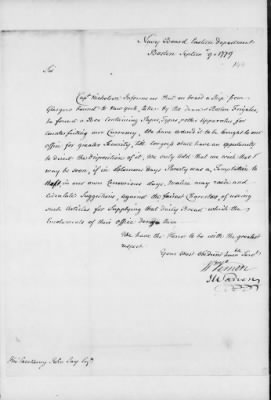 Navy Board Eastern Department
Boston Septem 9. 1779
Sir
Capt Nicholson Informs us that on board a Ship from
Glasgow bound to New York, taken by the Deane & Boston Frigates,
he found a Box containing Paper, Types, & other apparatus for
Counterfeiting our Currency, We have advised it to be brought to our
Office for greater Security, till Congress shall have an opportunity
to direct the disposition of it, We only Add that we wish that it
may be soon, if in Solomons days Poverty was a Temptation to
theft, in our own Censorious days, malice may raise and
circulate Suggestions, against the fairest Characters, of using
such Articles for Supplying that daily Bread which the
Emoluments of their Office
We have the Honor to be with the greatest
respect
Your Most Obedient Servts
Wm Vernon
J Warren
His Excellency John Jay Esqr